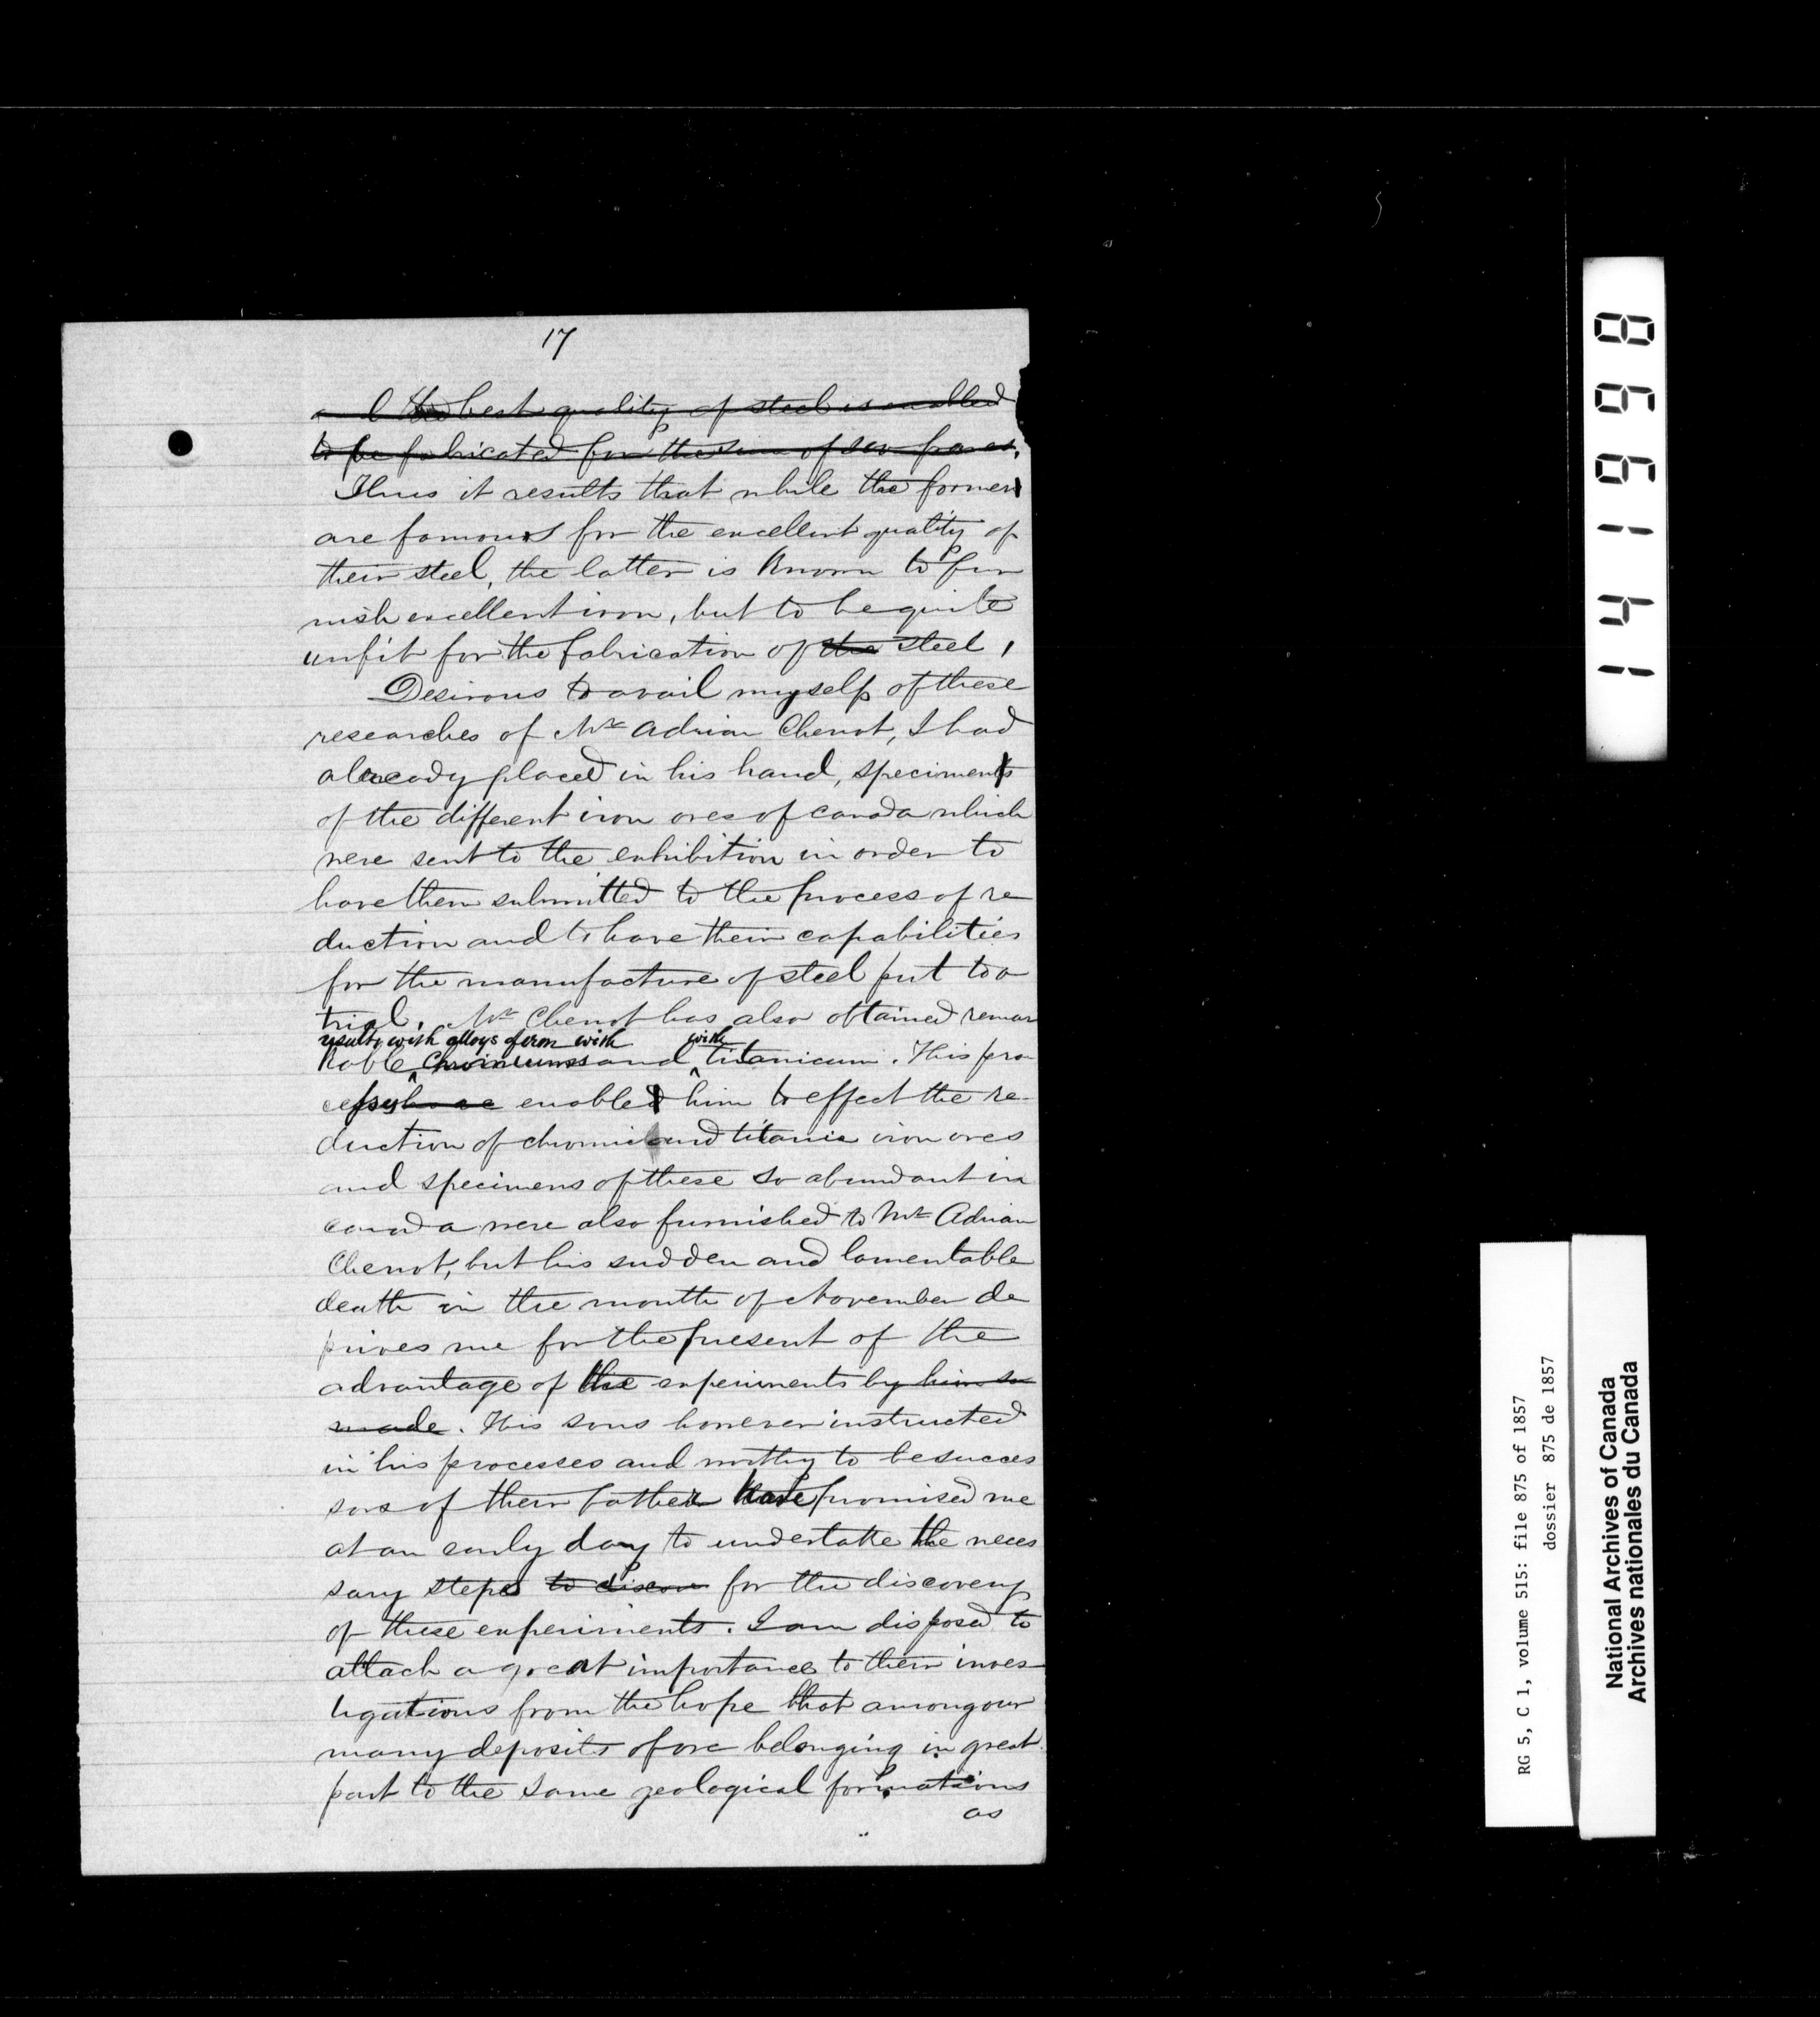 17
the best quality of steel is enabled
to be fabricated for the sum of
Thus it results that while the former
are famous for the excellent quality of
their steel, the latter is known to fur
nish excellent iron, but to be quite
unfit for the fabrication of the steel,
Desirous to avail myself of these
researches of Mr Adrian Chenot, I had
already placed in his hand, specimens
of the different iron ores of canada which
were sent to the exhibition in order to
have them submitted to the process of re
duction and to have their capabilities
for the manufacture of steel put to a
trial, Mr Chenot has also obtained remar
results with alloys of iron with with
kable and titanicum. This pro
cess enabled him to effect the re-
duction of chromic and titanic iron ores
and specimens of these so abundant in
canada were also furnished to Mr Adrian
Chenot, but his sudden and lamentable
death in the month of November de
prives me for the present of the
advantage of the experiments by him so
made. His sons however instructed
in his processes and worthy to be succes
sors of their father have promised me
at an early day to undertake the neces
sary steps to discov for the discovery
of these experiments. I am disposed to
attach a great importance to their inves-
tigations from the hope that among our
many deposits of ore belonging in great
part to the same geological formations
as
141968
RG 5, C 1, volume 515: file 875 of 1857
dossier 875 de 1857
National Archives of Canada
Archives nationales du Canada